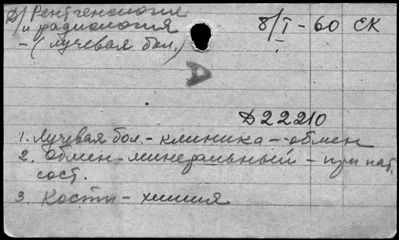 2) Рентгенология
и радиология
- (лучевая бол.)
8/I - 60 СК
D
D 22210
1. Лучевая бол. - клиника - обмен
2. Обмен - минеральный - при пат.
сост.
3. Кости - химия